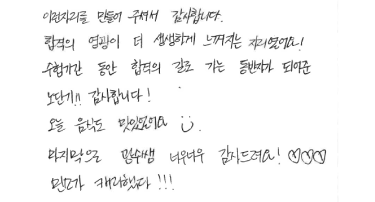 이런자리를 만들어 주셔서 감사합니다.
합격의 영광이 더 생생하게 느껴지는 자리였어요!
수험기간 동안 합격의 길로 가는 동반자가 되어준
노단기!! 감사합니다!
오늘 음식도 맛있었어요 ☺.
마지막으로 민수쌤 너무너무 감사드려요! ♡♡♡
멘토가 캐리했다!!!